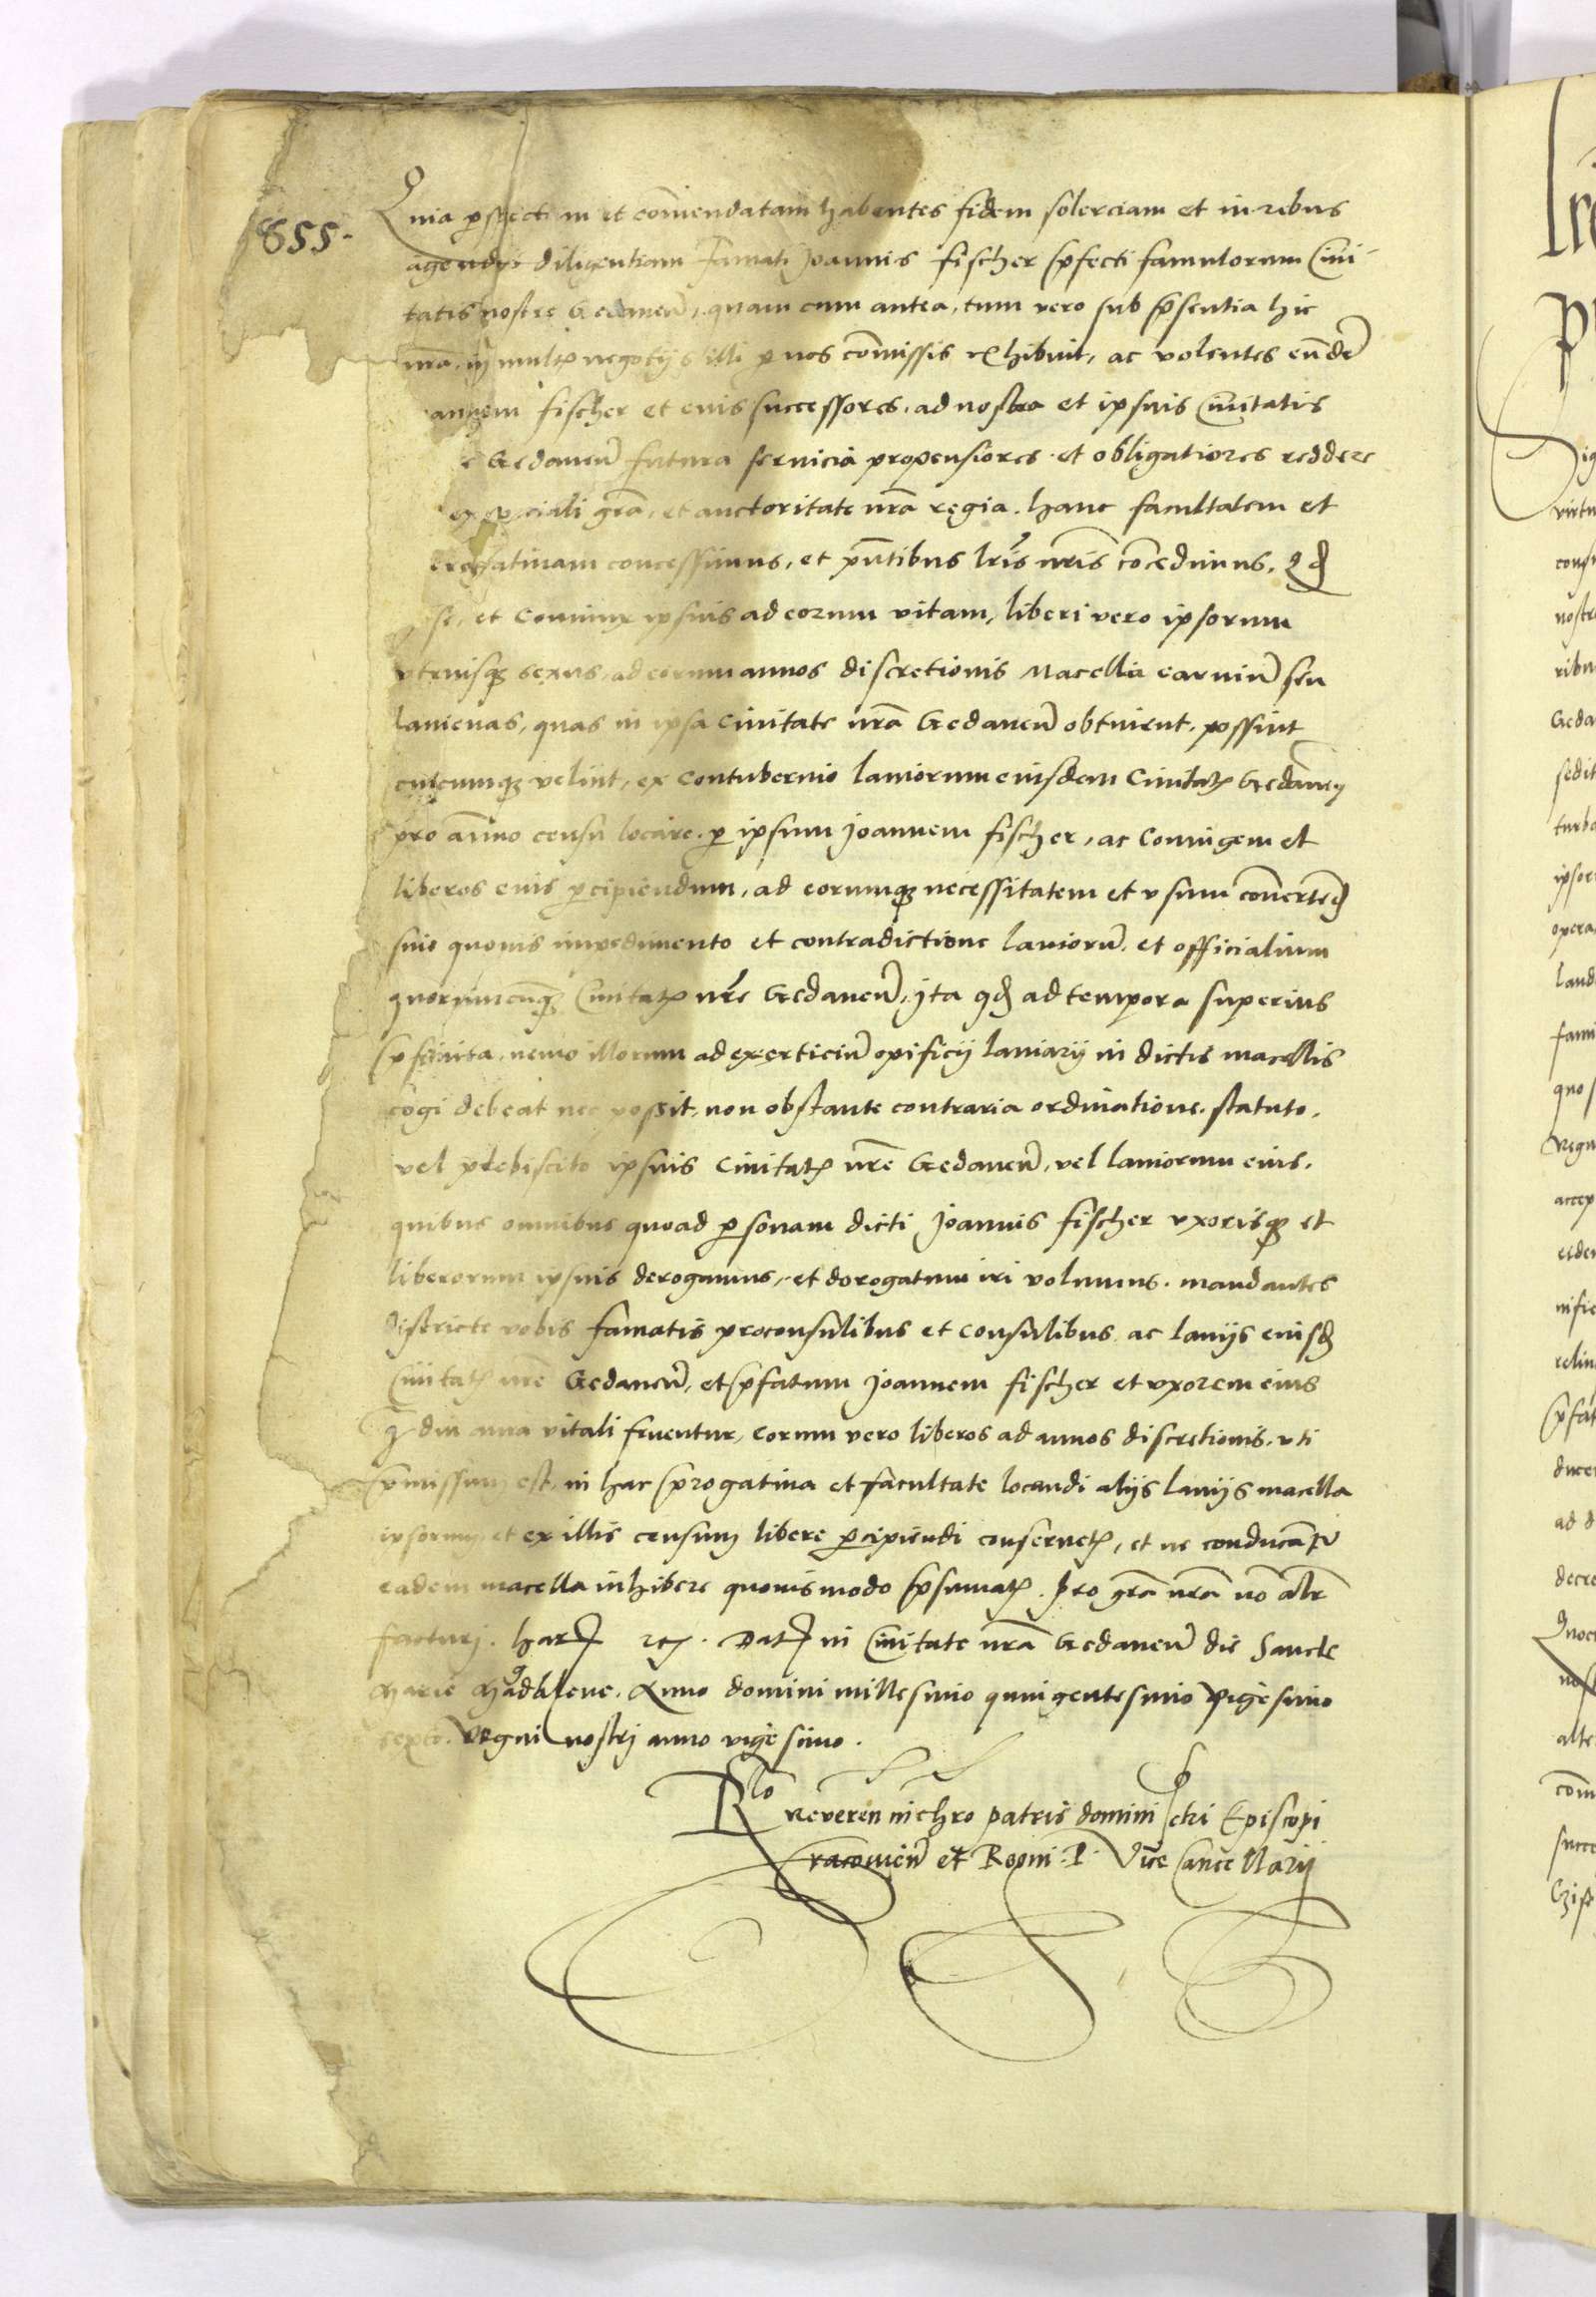 855.
Quia perspectam et com̄endatam habentes fidem solerciam et in rebus
agendis diligentiam famati Joannis fischer p̄fecti famulorum Ciui-
tatis nostre Gedaneñ, quam cum antea, tum vero sub p̄sentia hic
nr̄a, in multis negotijs illi per nos com̄issis exhibuit, ac volentes eund̄e
annem fischer et eius successores, ad nostra et ipsius Ciuitatis
e Gedaneñ futura seruicia propensiores et obligatiores reddere
ex speciali gr̄a, et auctoritate nr̄a regia hanc facultatem et
rogatiuam concessimus, et pñtibus lr̄is nr̄is con̄cedimus, quod
se, et Coniunx ipsius ad eorum vitam, liberi vero ipsorum
vtriusque sexus, ad eorum annos discretionis Macella carniū seu
lanienas, quas in ipsa Ciuitate nr̄a Gedaneñ obtinent, possint
cuicumque velint, ex Contubernio laniorum eiusdem Ciuitatis Gedaneñ
pro annuo censu locare, per ipsum Joannem fischer, ac Coniugem et
liberos eius percipiendum, ad eorumque necessitatem et vsum conuertend
sine quouis impedimento et contradictione laniorū, et officialium
quorumcumque Ciuitatis nr̄e Gedaneñ, Ita quod ad tempora superius
p̄finita, nemo illorum ad exerticiū opificij laniarij in dictis macellis
cogi debeat nec possit, non obstante contraria ordinatione, statuto,
vel plebiscito ipsius Ciuitatis nr̄e Gedaneñ, vel laniorum eius,
quibus omnibus quoad personam dicti Joannis fischer vxorisque et
liberorum ipsius derogamus, et dorogatum iri volumus. mandantes
districte vobis famatis proconsulibus et consulibus ac lanijs eiusd
Ciuitatis nr̄e Gedaneñ, et p̄fatum Joannem fischer et vxorem eius
q̄ diu aura vitali fruentur, eorum vero liberos ad annos discretionis, vti
p̄missum est, in hac p̄rogatiua et facultate locandi alijs lanijs macella
ipsorum et ex illis censum libere percipiendi conseruetis, et ne conducant
eadem macella inhibere quouismodo p̄sumatis. Pro gr̄a nr̄a nō alr̄
facturj. Har etc. Dat in Ciuitate nr̄a Gedaneñ die Sancte
Marie Magdalene. Anno domini millesimio quingentesimio vigesimo
sexto. Regni nostrj anno vigesimo.
Rlo Reueren in chro patris domini Petri Episcopi
racouieñ et Regni P. Vice Cancellarij